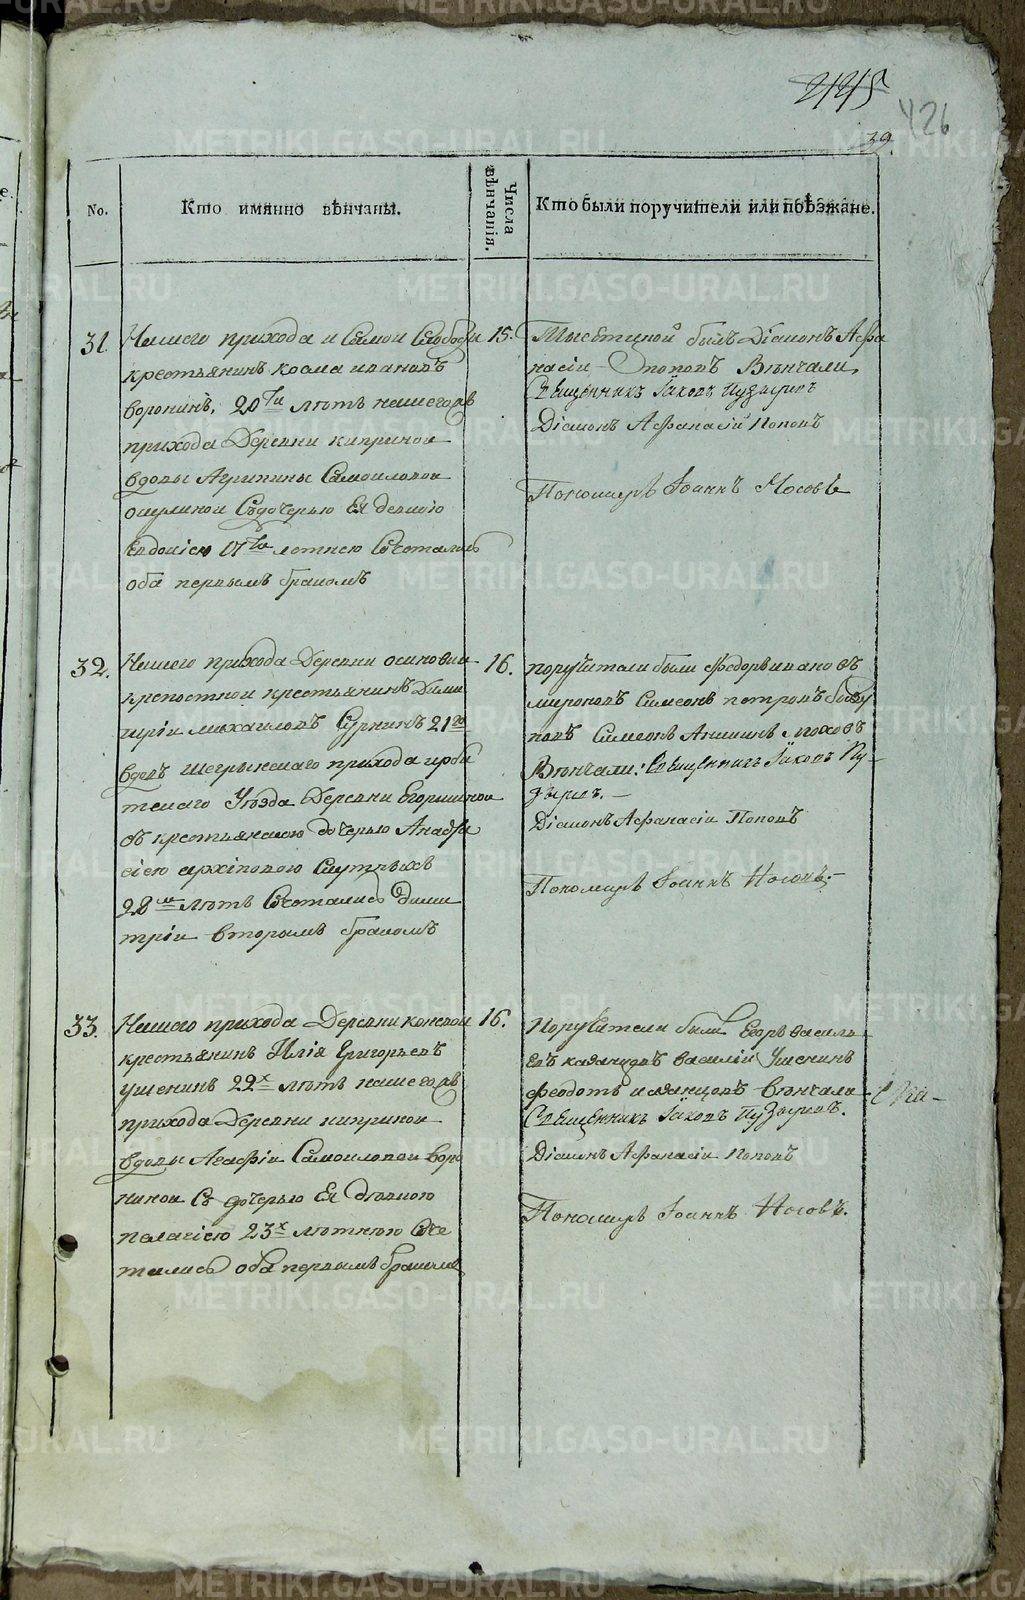 2125
426
39.
No.
Кто имянно вѣнчаны.
Числа вѣнчанія.
Кто были поручители или поѣзжане.
31.
Нашего прихода и Самой Слободы
крестьянинъ козма ивановъ
воронинъ, 20ти лѣтъ нашегожъ
прихода Деревни киприной
вдовы Агрипины Самойловой
Съдочерью Ея девкою
Евдокіею 17ти летнею Сочетались
оба первымъ бракомъ
15.
Тысецкой былъ Діаконъ Афа
насіи Поповъ Вѣнчали
Священникъ Іаковъ Пузыревъ
Діаконъ Афанасій Поповъ
Пономарь Іоаннъ Носовъ
32.
Нашего прихода Деревни осиновки
крепостной крестьянинъ Дими
трій михаиловъ Сурнинъ 21го
вдовъ прихода ирби
тскаго Уѣзда Деревни Егоршиной
съ крестьянскою дочерью Анаста
сіею архиповою
28ми лѣтъ Сочетались Дими
трій вторымъ бракомъ
16.
поручители были Федоръ ивановъ
мироновъ Симеонъ петровъ
повъ Симеонъ
Вѣнчали: Священникъ Іаковъ Пу-
зыревъ. —
Діаконъ Афанасіи Поповъ
Пономарь Іоаннъ Носовъ.-
33.
Нашего прихода Деревни коневой
крестьянинъ Илія Григорьевъ
ушенинъ 22х лѣтъ нашегожъ
прихода Деревни киприной
вдовы Агафіи Самойловой воро
ниной Съ дочерью Ея девкою
пелагіею 23х лѣтнею Соче
тались оба первымъ бракомъ
16.
Поручители были Егоръ василь
евъ василій Ушенинъ
феодотъ вѣнчали
Священникъ Іаковъ Пузыревъ.
Діаконъ Афанасіи Поповъ
Пономарь Іоаннъ Носовъ.
METRIKI.GASO-URAL.RU